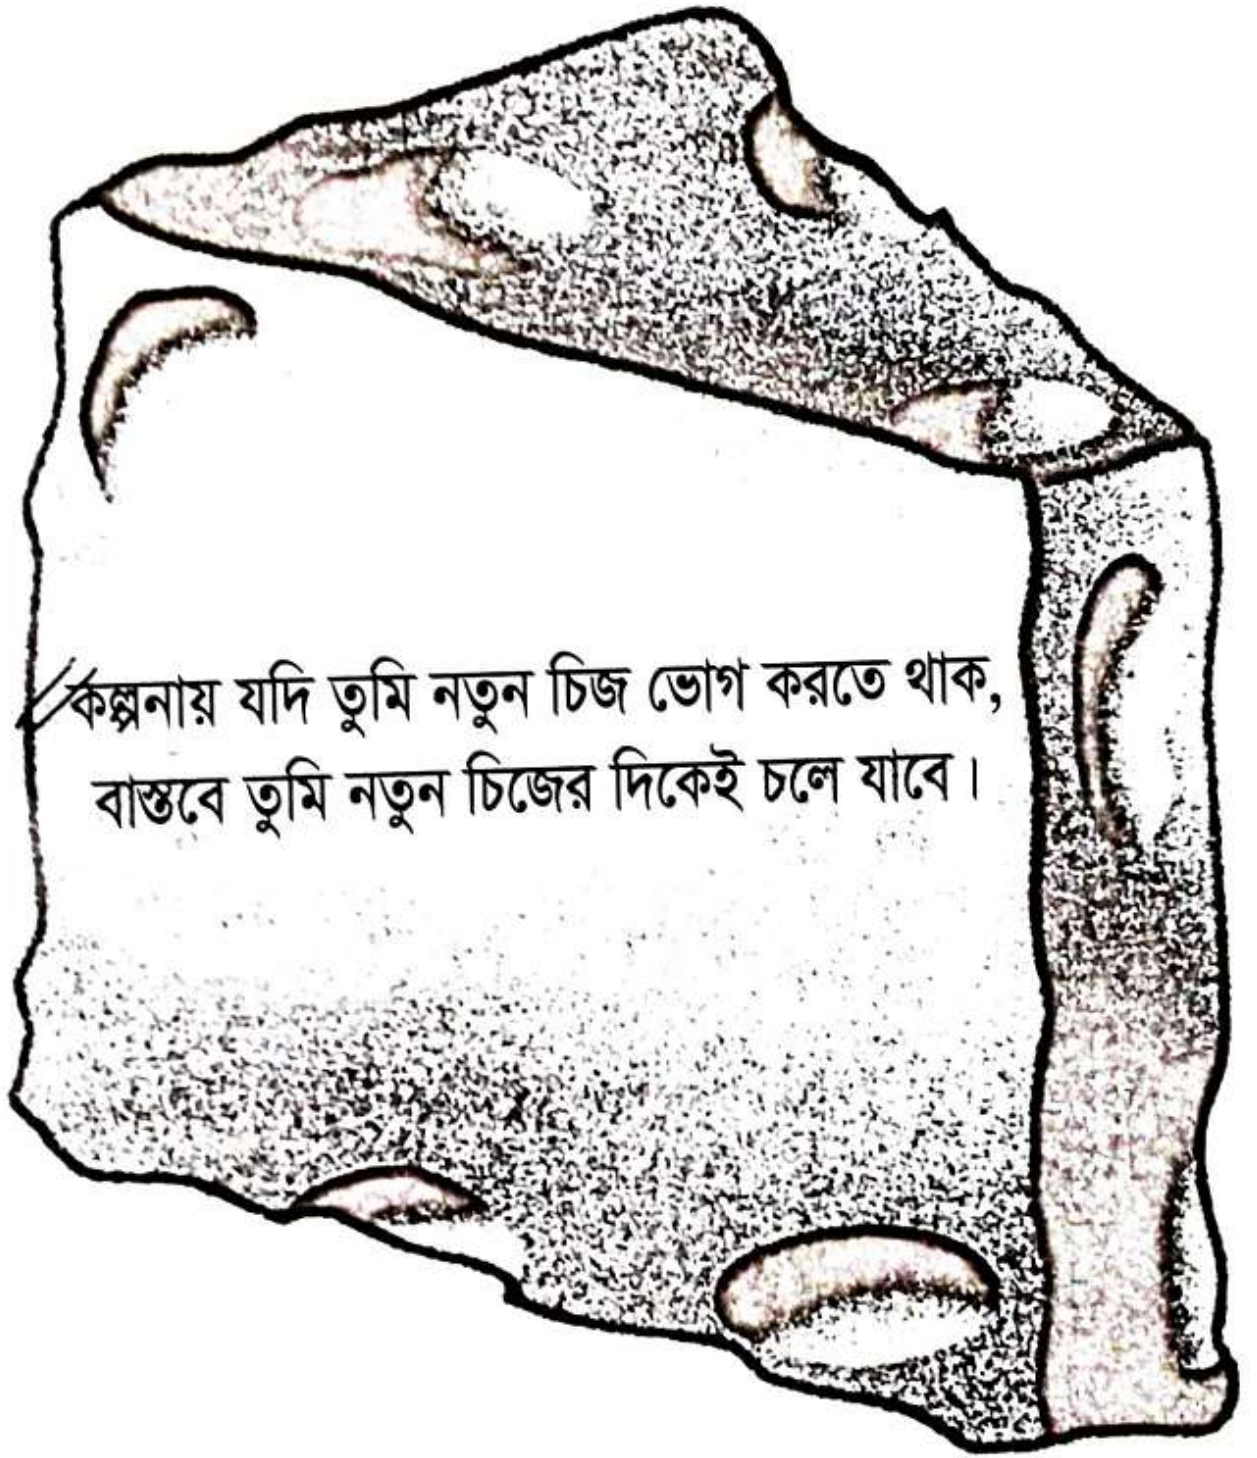 কল্পনায় যদি তুমি নতুন চিজ ভোগ করতে থাক,
বাস্তবে তুমি নতুন চিজের দিকেই চলে যাবে।